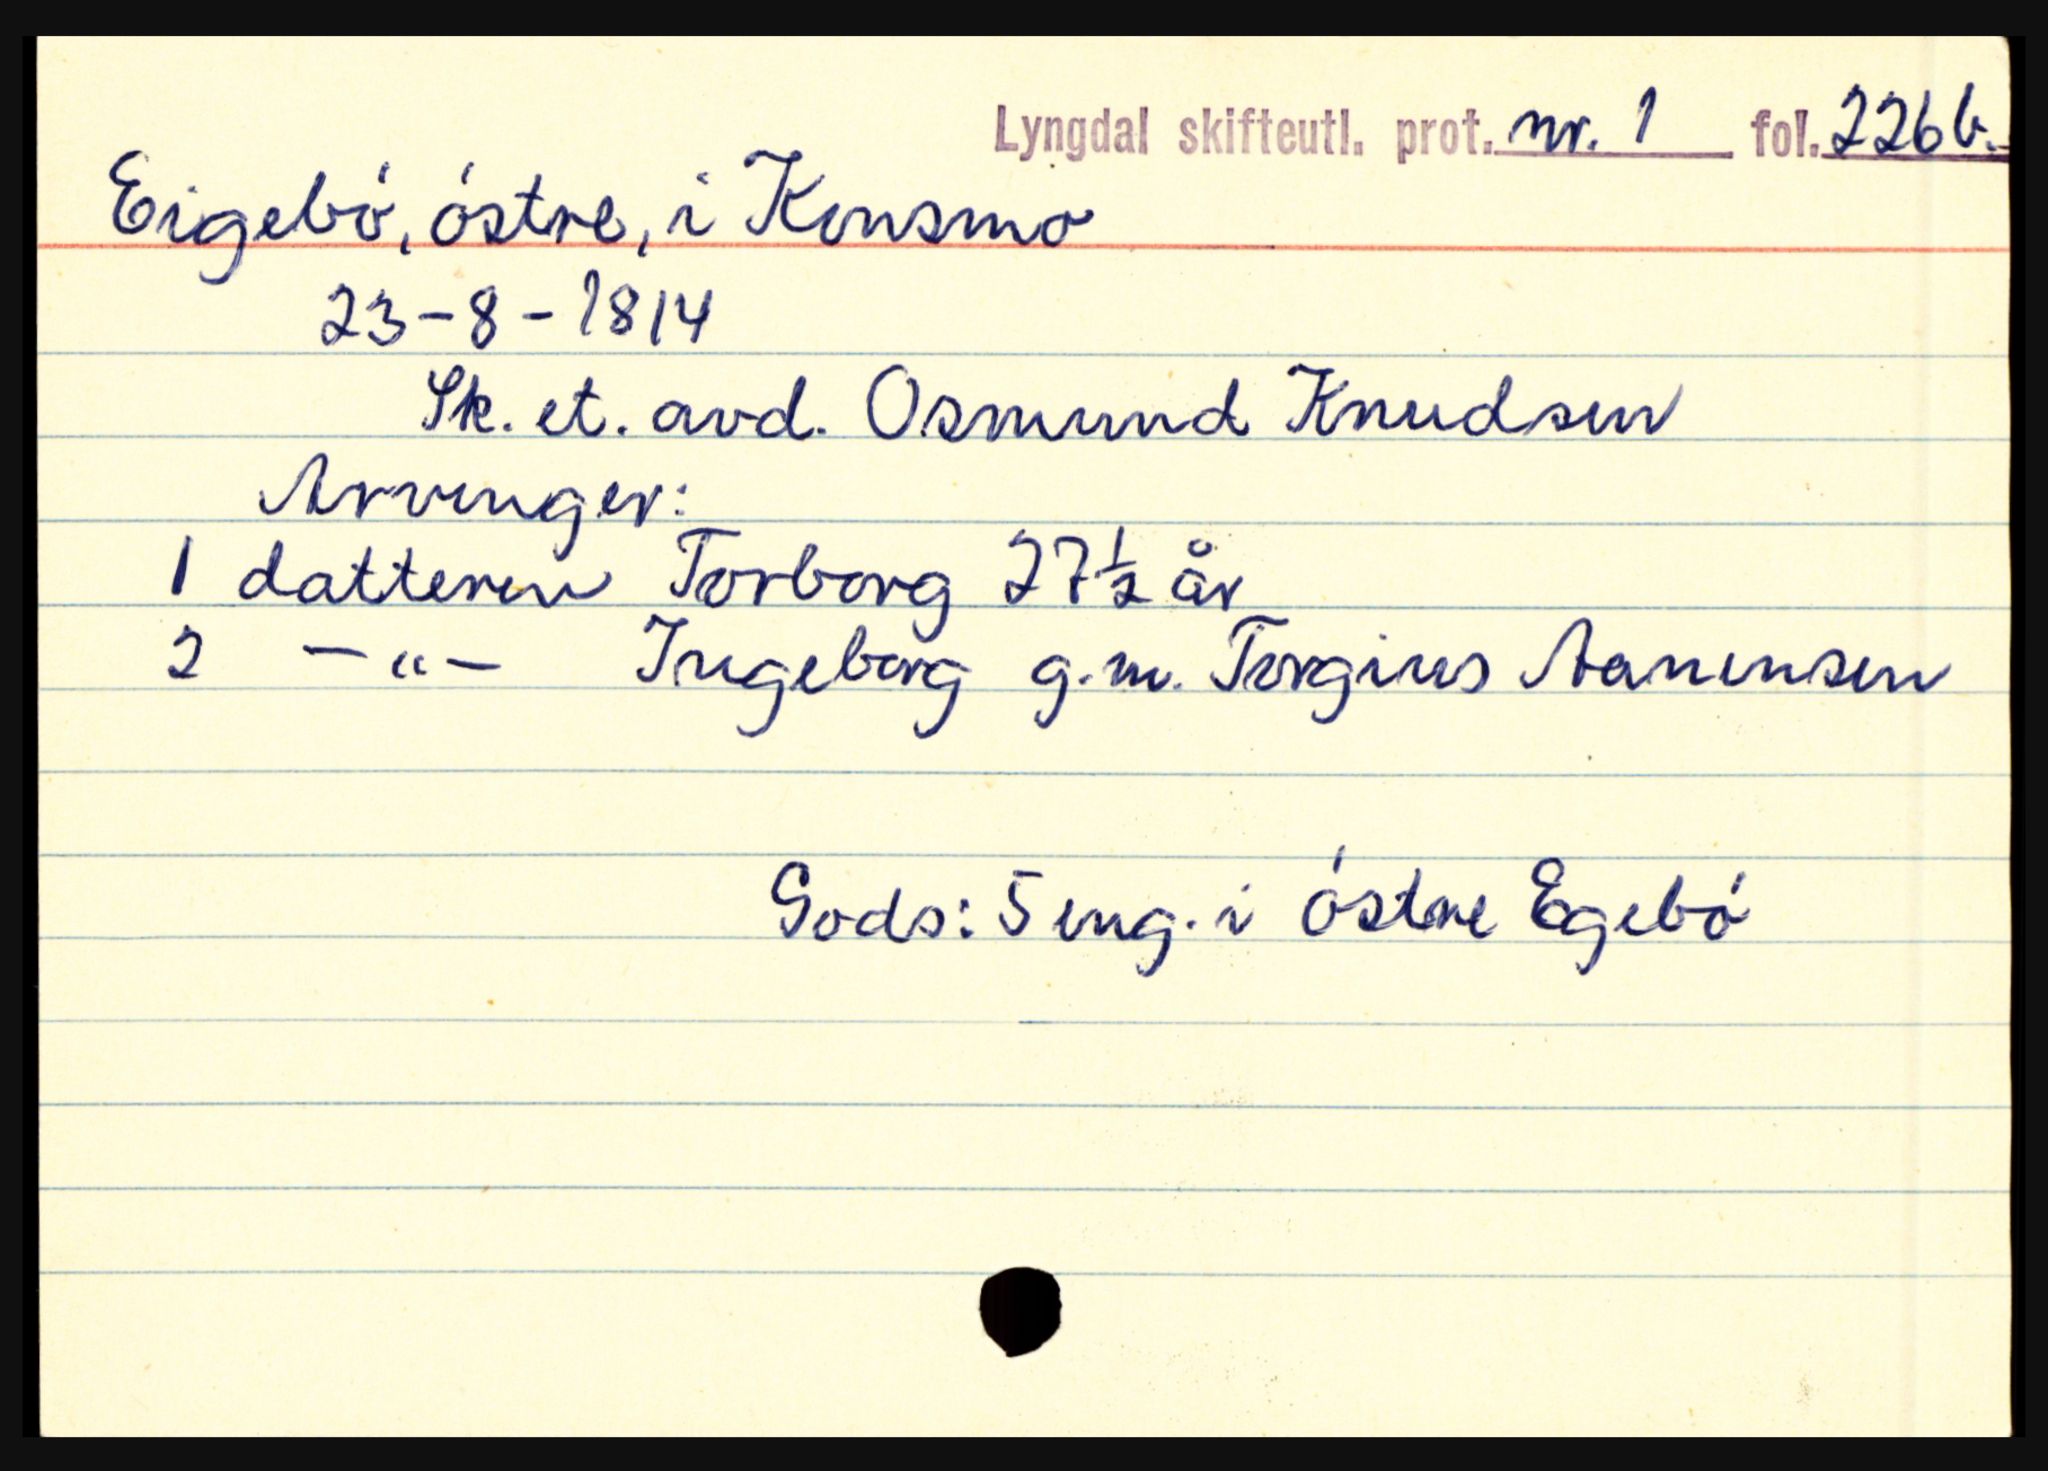 Lyngdal skifteutl. prot. nr. 1 fol. 226 b.
Eigebó, óstre, i Konsmo
23-8-1814
Sk. et. avd. Osmund Knudsen
Arvinger:
1 datteren Torborg 27 1/2 år
2 -"- Ingeborg g.m. Torgius Aanensen
Gods: 5 eng. i óstre Egebó